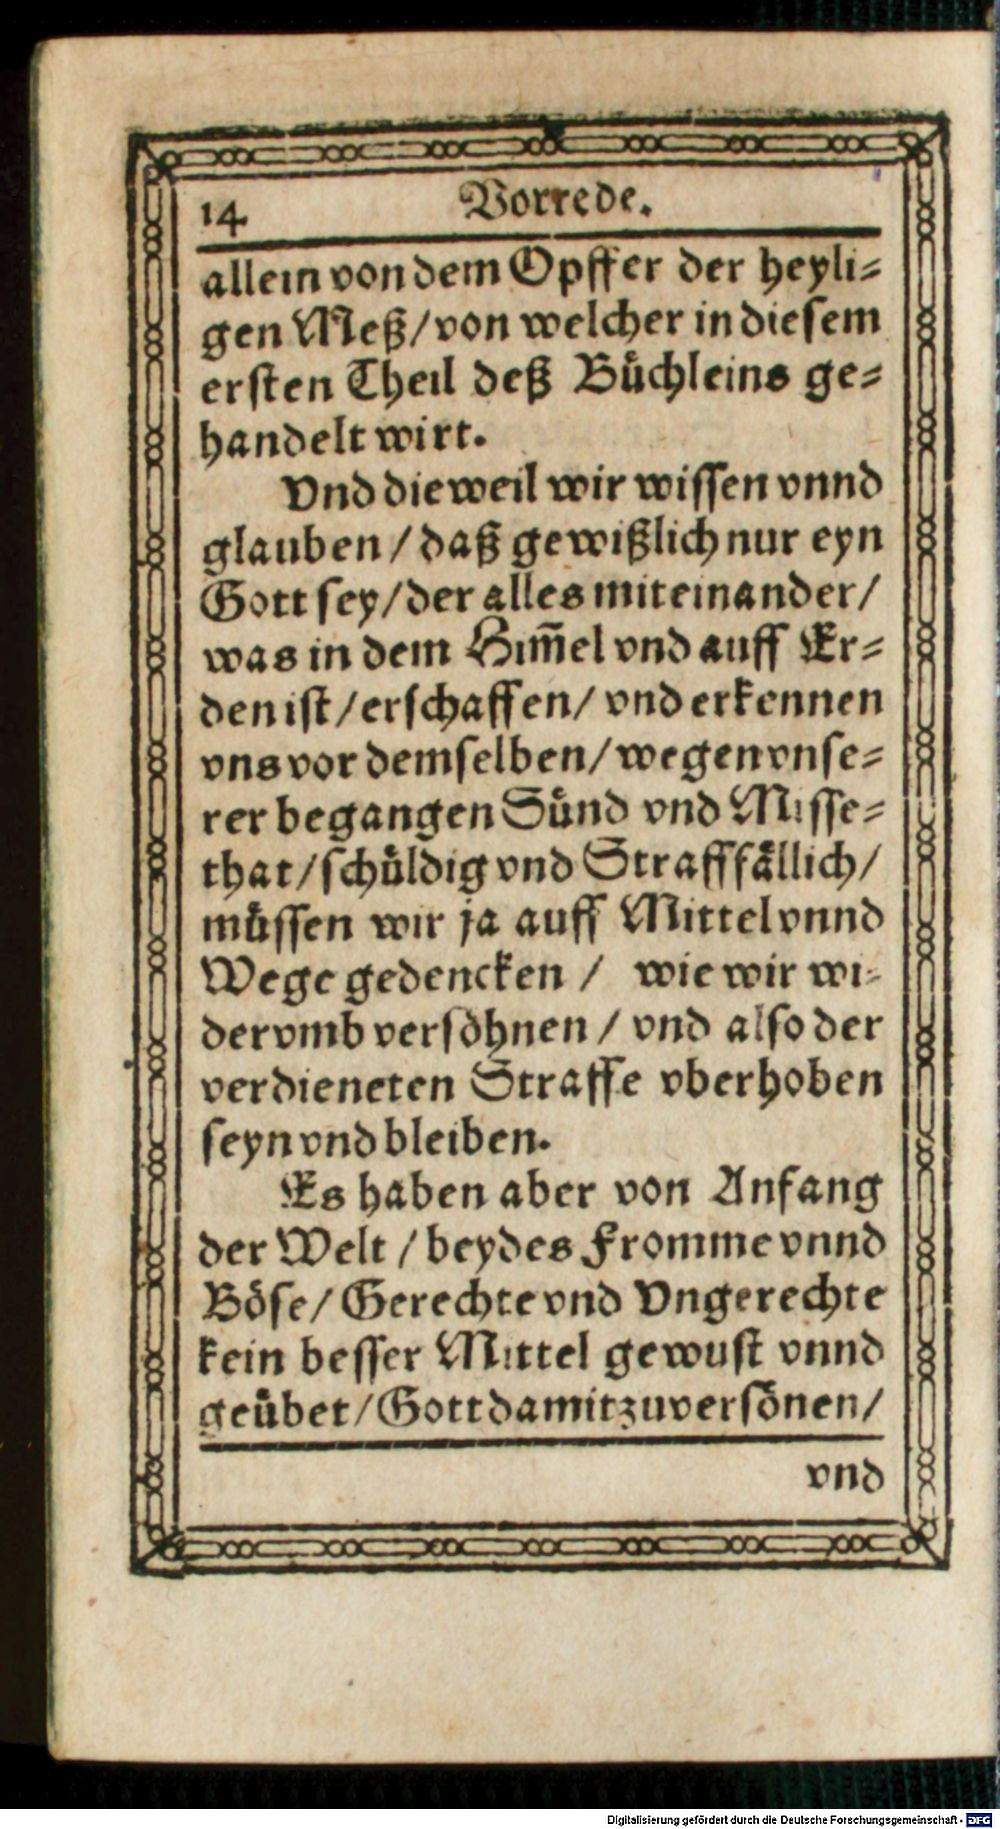 14 Vorrede.
allein von dem Opffer der heyli⸗
gen Meß/von welcher in diesem
ersten Theil deß Bůchleins ge⸗
handelt wirt.
Vnd dieweil wir wissen vnnd
glauben/daß gewißlich nur eyn
Gott sey/der alles miteinander/
was in dem Him̅el vnd auff Er⸗
den ist/erschaffen/ vnd erkennen
vns vor demselben/wegen vnse⸗
rer begangen Sůnd vnd Misse⸗
that/schůldig vnd Strafffållich/
můssen wir ja auff Mittel vnnd
Wege gedencken / wie wir wi⸗
dervmb versöhnen / vnd also der
verdieneten Straffe vberhoben
seyn vnd bleiben.
Es haben aber von Anfang
der Welt / beydes Fromme vnnd
Böse/ Gerechte vnd Vngerechte
kein besser Mittel gewust vnnd
geůbet/Gott damit zuversönen/
vnd
Digitalisierung gefördert durch die Deutsche Forschungsgemeinschaft - DFG